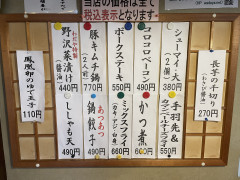 当店の価格は全て
税込表示となります。
長芋の千切り
(わさび醤油)
270円
シューマイ・大
(2ケ)
380円
手羽先&
タンドールチーズフライ
550円
コロコロベーコン
490円
かつ煮
600円
ポークステーキ
550円
ミックスフライ
660円
豚キムチ鍋
770円
あつあつ
鍋餃子
490円
わだや特製
野沢菜漬け
(醤油)
440円
ししゃも天
490円
鳳凰卵のゆで玉子
110円